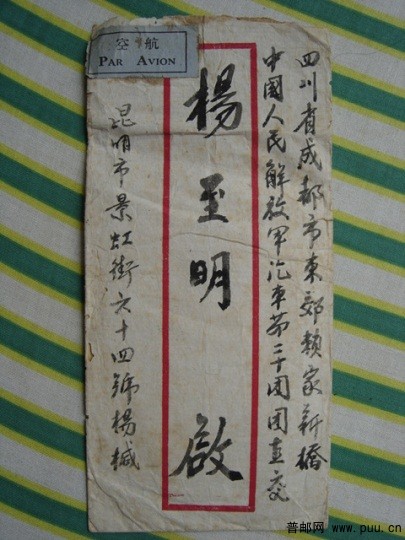 四川省成都市東郊賴家新橋
中國人民解放軍汽車第二十团团直交
楊至明 啟
昆明市景虹街六十四號楊緘
航空
PAR AVION
普邮网 www.puu.cn